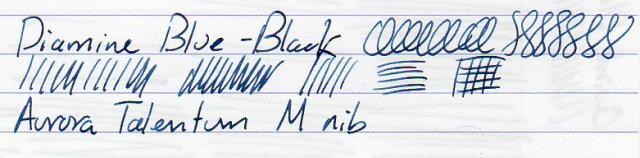 Diamine Blue-Black
Aurora Talentum M nib